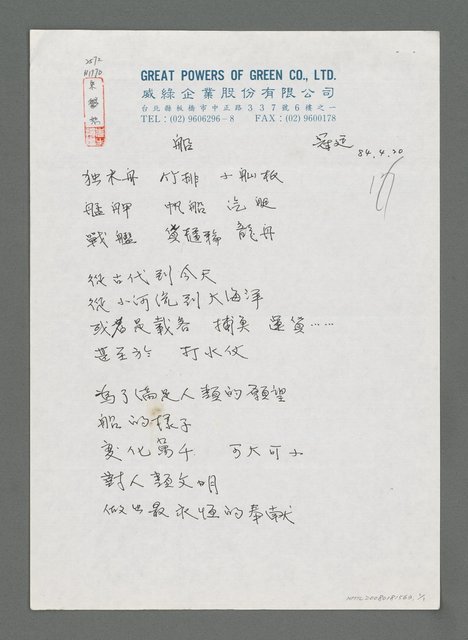 GREAT POWERS OF GREEN CO., LTD.
威綠企業股份有限公司
台北縣板橋市中正路337號6樓之一
TEL：(02) 9606296－8 FAX：(02) 9600178
船
84.4.20
独木舟 竹排 小舢板
艋舺 帆船 汽艇
戰艦 貨櫃輪 龍舟
從古代到今天
從小河流到大海洋
或者是載客 捕魚 運貨……
甚至於 打水仗
為了滿足人類的願望
船的樣子
變化萬千 可大可小
對人類文明
做出最永恆的奉獻